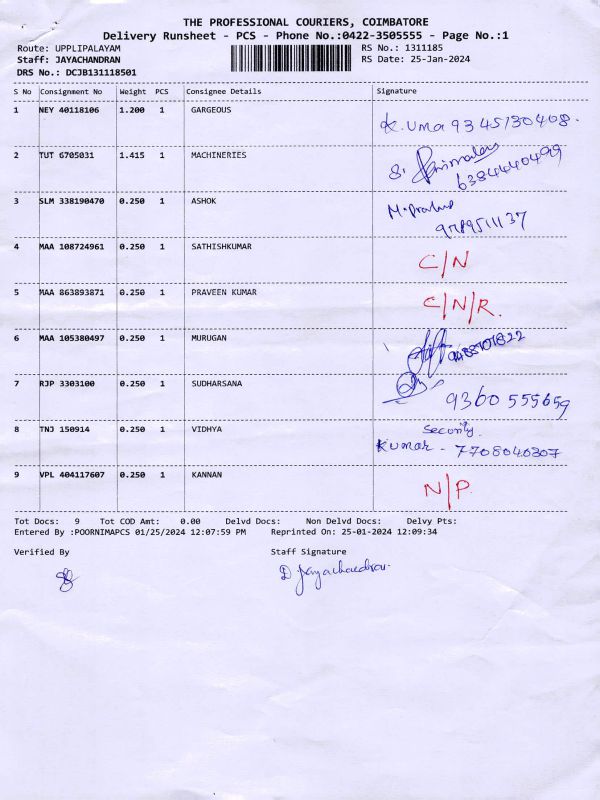 THE PROFESSIONAL COURIERS, COIMBATORE
Delivery Runsheet - PCS - Phone No.:0422-3505555 - Page No.:1
Route: UPPLIPALAYAM RS No.: 1311185
Staff: JAYACHANDRAN RS Date: 25-Jan-2024
DRS No.: DCJB131118501
S No Consignment No Weight PCS Consignee Details Signature
1 NEY 40118106 1.200 1 GARGEOUS K. Uma 9345130408.
2 TUT 6705031 1.415 1 MACHINERIES S.
6384440499
3 SLM 338190470 0.250 1 ASHOK M.
9789511137
4 MAA 108724961 0.250 1 SATHISHKUMAR C/N
5 MAA 863893871 0.250 1 PRAVEEN KUMAR C/N/R.
6 MAA 105380497 0.250 1 MURUGAN
7 RJP 3303100 0.250 1 SUDHARSANA 9360 555659
8 TNJ 150914 0.250 1 VIDHYA Security.
Kumar - 7708040307
9 VPL 404117607 0.250 1 KANNAN N/P.
Tot Docs: 9 Tot COD Amt: 0.00 Delvd Docs: Non Delvd Docs: Delvy Pts:
Entered By :POORNIMAPCS 01/25/2024 12:07:59 PM Reprinted On: 25-01-2024 12:09:34
Verified By Staff Signature
D Jayachandran